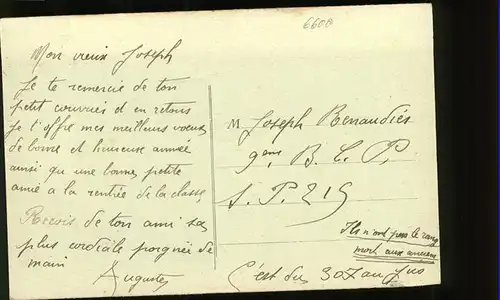 6600
Mon vieux Joseph
Je te remercie de ton
petit courrier et en retour
Je t'offre mes meilleurs voeux
de bonne et heureuse année
ainsi qu'une bonne petite
amie à la rentrée de la classe
Recois de ton ami sa
plus cordiale poignée de
main
Auguste
M Joseph Renaudiés
9ème B. C. P.
S. P. 215
Ils n'ont pas le
mort aux anciens
C'est du 307 au jus